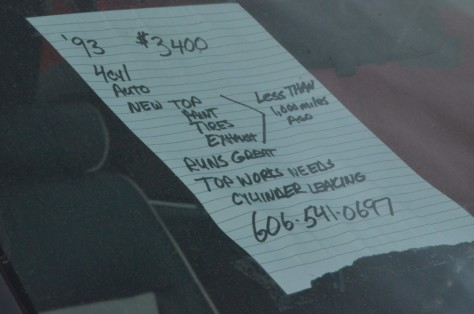 '93 $3400
4cyl
Auto
NEW TOP
PAINT
TIRES
EXHAUST
LESS THAN
1,000 miles
AGO
RUNS GREAT
TOP WORKS NEEDS
CYLINDER LEAKING
606-541-0697